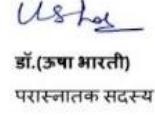 Usha
डॉ.(ऊषा भारती)
परास्नातक सदस्य